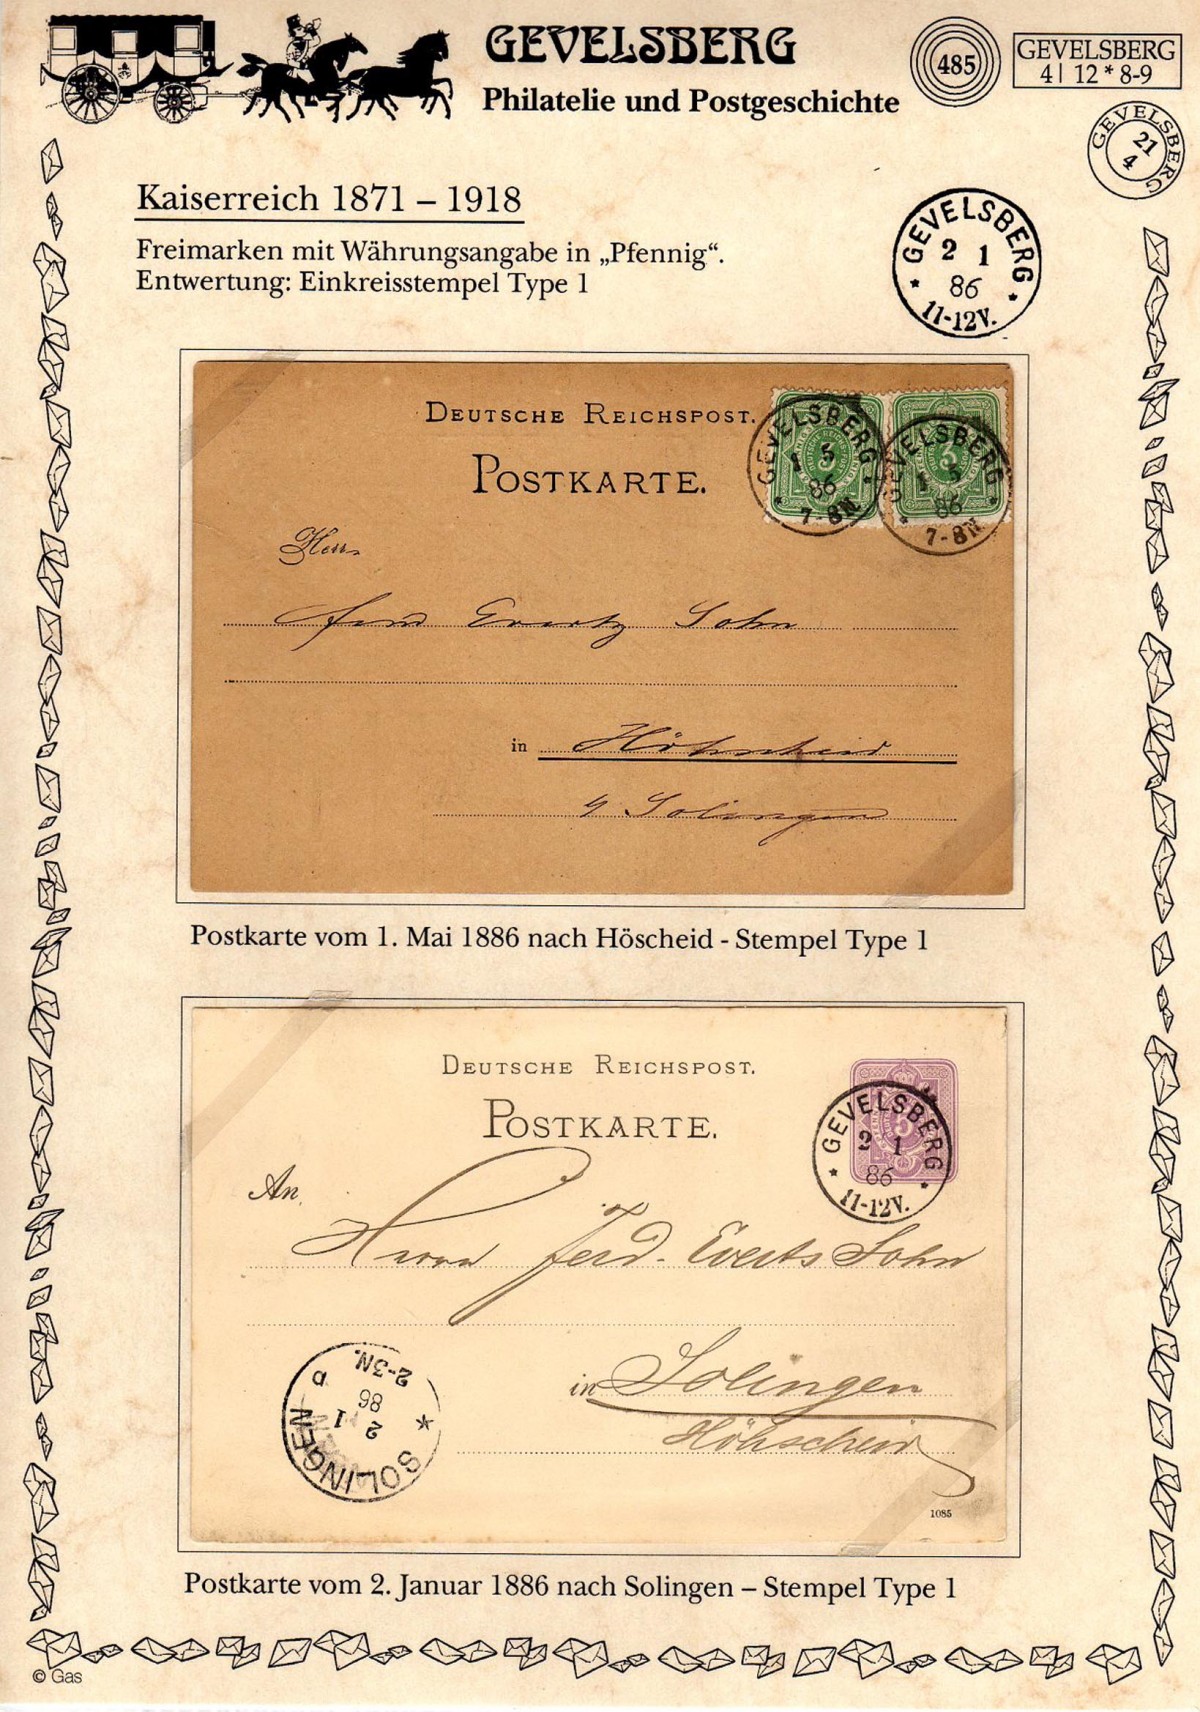 GEVELSBERG
Philatelie und Postgeschichte
485
GEVELSBERG
4| 12 * 8-9
GEVELSBERG
21
4
Kaiserreich 1871 – 1918
Freimarken mit Währungsangabe in „Pfennig“.
Entwertung: Einkreisstempel Type 1
GEVELSBERG
2 1
86
* 11-12V. *
DEUTSCHE REICHSPOST.
POSTKARTE.
GEVELSBERG
1 5
86
* 7-8N. *
GEVELSBERG
1 5
86
* 7-8N. *
3
3
Herrn
Ferd Evertz Sohn
in Höhscheid
b/ Solingen
Postkarte vom 1. Mai 1886 nach Höscheid - Stempel Type 1
DEUTSCHE REICHSPOST.
POSTKARTE.
5
GEVELSBERG
2 1
86
* 11-12V. *
An
Herrn Ferd. Everts Sohn
in Solingen
Höhscheid
SOLINGEN
2 1
86
2-3N.
*
1085
Postkarte vom 2. Januar 1886 nach Solingen – Stempel Type 1
© Gas